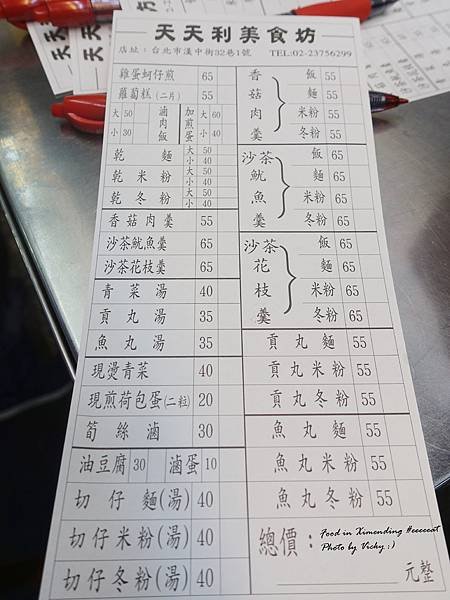 天天利美食坊
店址：台北市漢中街32巷1號 TEL:02-23756299
雞蛋蚵仔煎 65
蘿蔔糕(二片) 55
大 50 小 30 滷肉飯 加煎蛋 大 60 小 40
乾麵 大 50 小 40
乾米粉 大 50 小 40
乾冬粉 大 50 小 40
香菇肉羹 55
沙茶魷魚羹 65
沙茶花枝羹 65
青菜湯 40
貢丸湯 35
魚丸湯 35
現燙青菜 40
現煎荷包蛋(二粒) 20
筍絲滷 30
油豆腐 30 滷蛋 10
切仔麵(湯) 40
切仔米粉(湯) 40
切仔冬粉(湯) 40
香菇肉羹
飯 55
麵 55
米粉 55
冬粉 55
沙茶魷魚羹
飯 65
麵 65
米粉 65
冬粉 65
沙茶花枝羹
飯 65
麵 65
米粉 65
冬粉 65
貢丸麵 55
貢丸米粉 55
貢丸冬粉 55
魚丸麵 55
魚丸米粉 55
魚丸冬粉 55
總價：
元整
Food in Ximending Heeeeeat
Photo by Vicky :)